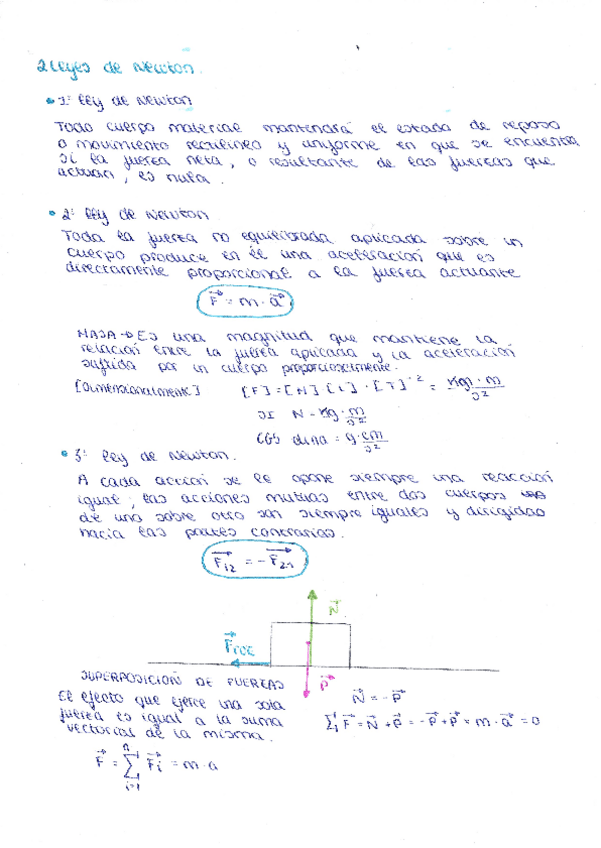 2 Leyes de Newton.
1ª Ley de Newton
Todo cuerpo material mantendrá el estado de reposo
o movimiento rectilíneo y uniforme en que se encuentra
si la fuerza neta, o resultante de las fuerzas que
actúan, es nula.
2ª Ley de Newton
Toda la fuerza no equilibrada aplicada sobre un
cuerpo produce en él una aceleración que es
directamente proporcional a la fuerza actuante
F⃗ = m · a⃗
MASA → Es una magnitud que mantiene la
relación entre la fuerza aplicada y la aceleración
sufrida por un cuerpo proporcionalmente.
[Dimensionalmente] [F] = [M] [L] · [T]⁻² = kg · m / s²
SI N = kg · m / s²
CGS dina = g · cm / s²
3ª Ley de Newton.
A cada acción se le opone siempre una reacción
igual; las acciones mutuas entre dos cuerpos
de uno sobre otro son siempre iguales y dirigidas
hacia las partes contrarias.
F⃗₁₂ = -F⃗₂₁
N⃗
F⃗roz
P⃗
SUPERPOSICIÓN DE FUERZAS
El efecto que ejerce una sola
fuerza es igual a la suma
vectorial de la misma.
F⃗ = Σ F⃗i = m · a
n
i=1
N⃗ = -P⃗
Σ F⃗ = N⃗ + P⃗ = -P⃗ + P⃗ = m · a⃗ = 0